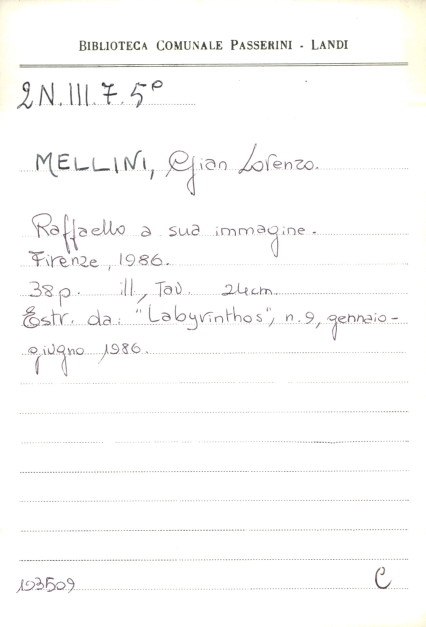 BIBLIOTECA COMUNALE PASSERINI - LANDI
2N.III.7.5°
MELLINI, Gian Lorenzo.
Raffaello a sua immagine.
Firenze, 1986.
38p. ill, Tav. 24cm.
Estr. da: "Labyrinthos", n.9, gennaio-
giugno 1986.
193509 C